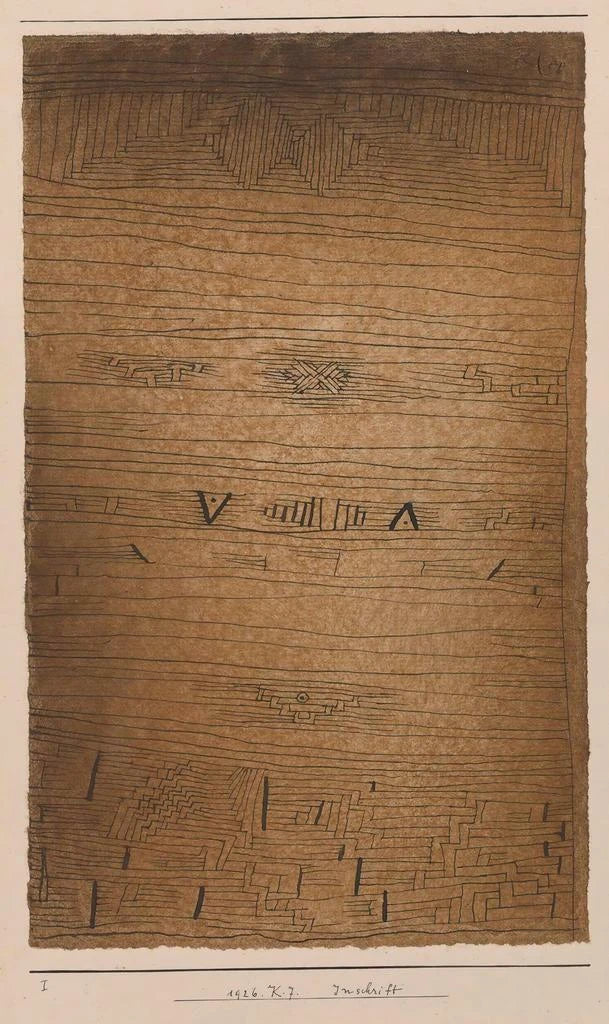 Klee
I
1926. K. 7. Inschrift